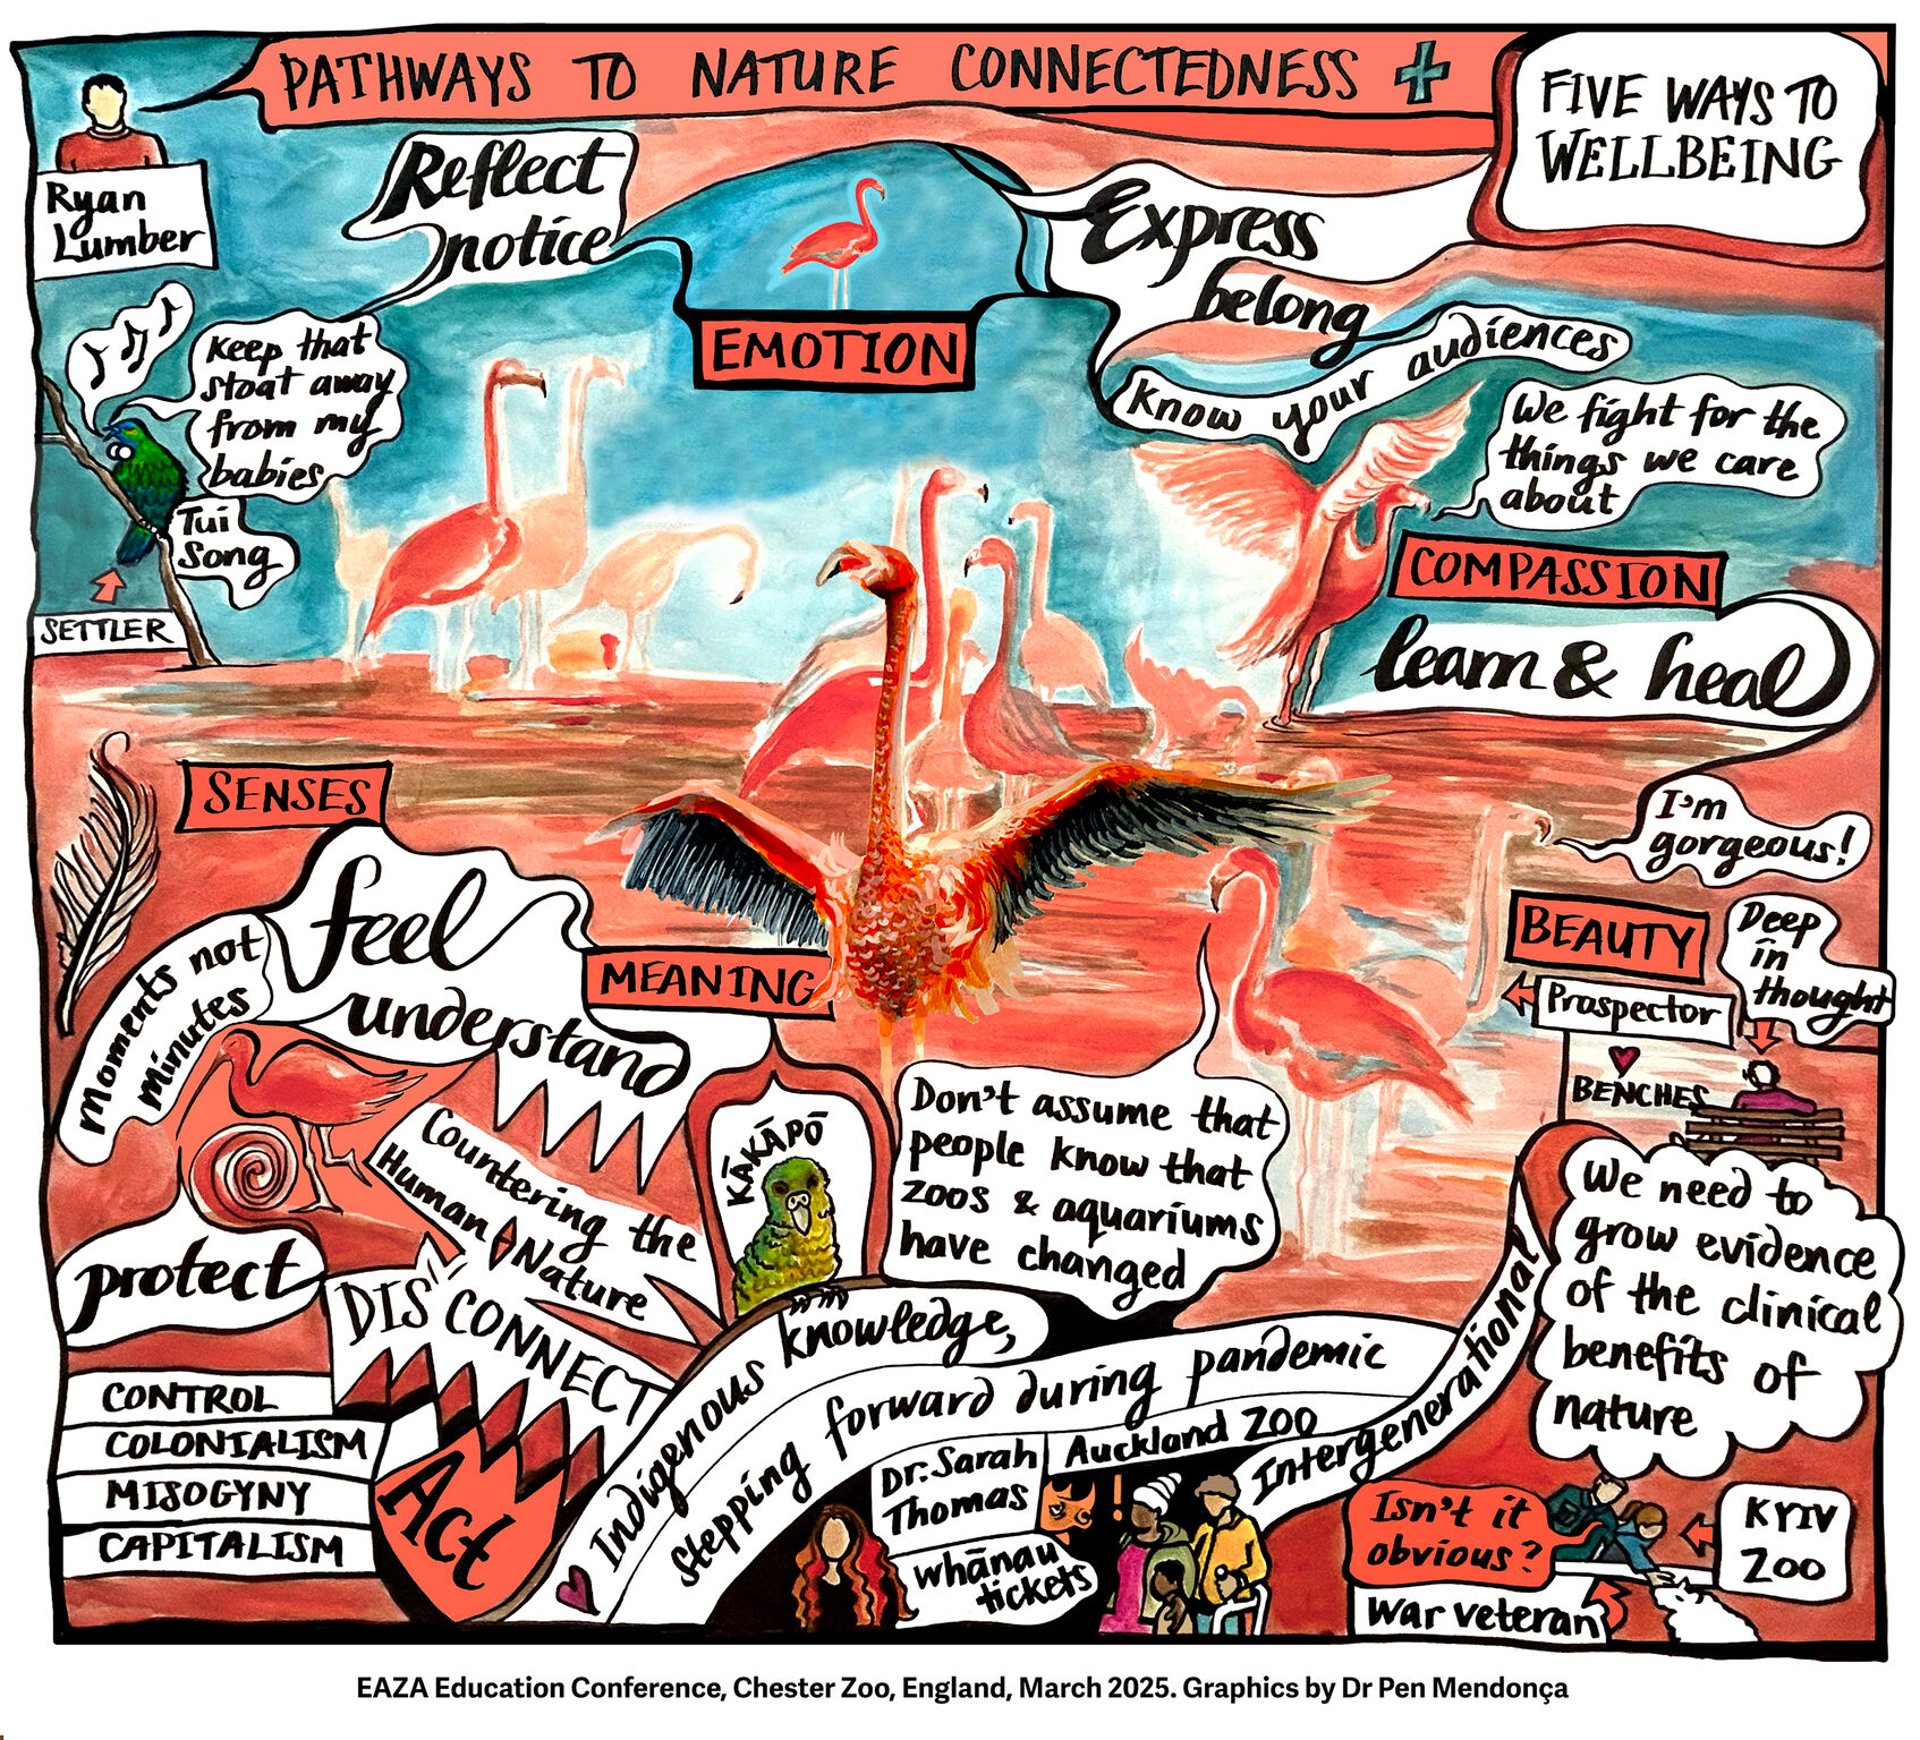 PATHWAYS TO NATURE CONNECTEDNESS +
FIVE WAYS TO
WELLBEING
Ryan
Lumber
Reflect
notice
EMOTION
Express
belong
Know your audiences
Keep that
stoat away
from my
babies
Tui
Song
SETTLER
We fight for the
things we care
about
COMPASSION
learn & heal
SENSES
feel
understand
moments not
minutes
MEANING
I'm
gorgeous!
BEAUTY
Deep
in
thought
Prospector
BENCHES
Countering the
Human Nature
DIS'CONNECT
KĀKĀPŌ
Don't assume that
people know that
zoos & aquariums
have changed
We need to
grow evidence
of the clinical
benefits of
nature
protect
CONTROL
COLONIALISM
MISOGYNY
CAPITALISM
Act
Indigenous knowledge,
Stepping forward during pandemic
Intergenerational
Auckland Zoo
Dr. Sarah
Thomas
whānau
tickets
!
Isn't it
obvious?
War veteran
KYIV
ZOO
EAZA Education Conference, Chester Zoo, England, March 2025. Graphics by Dr Pen Mendonça